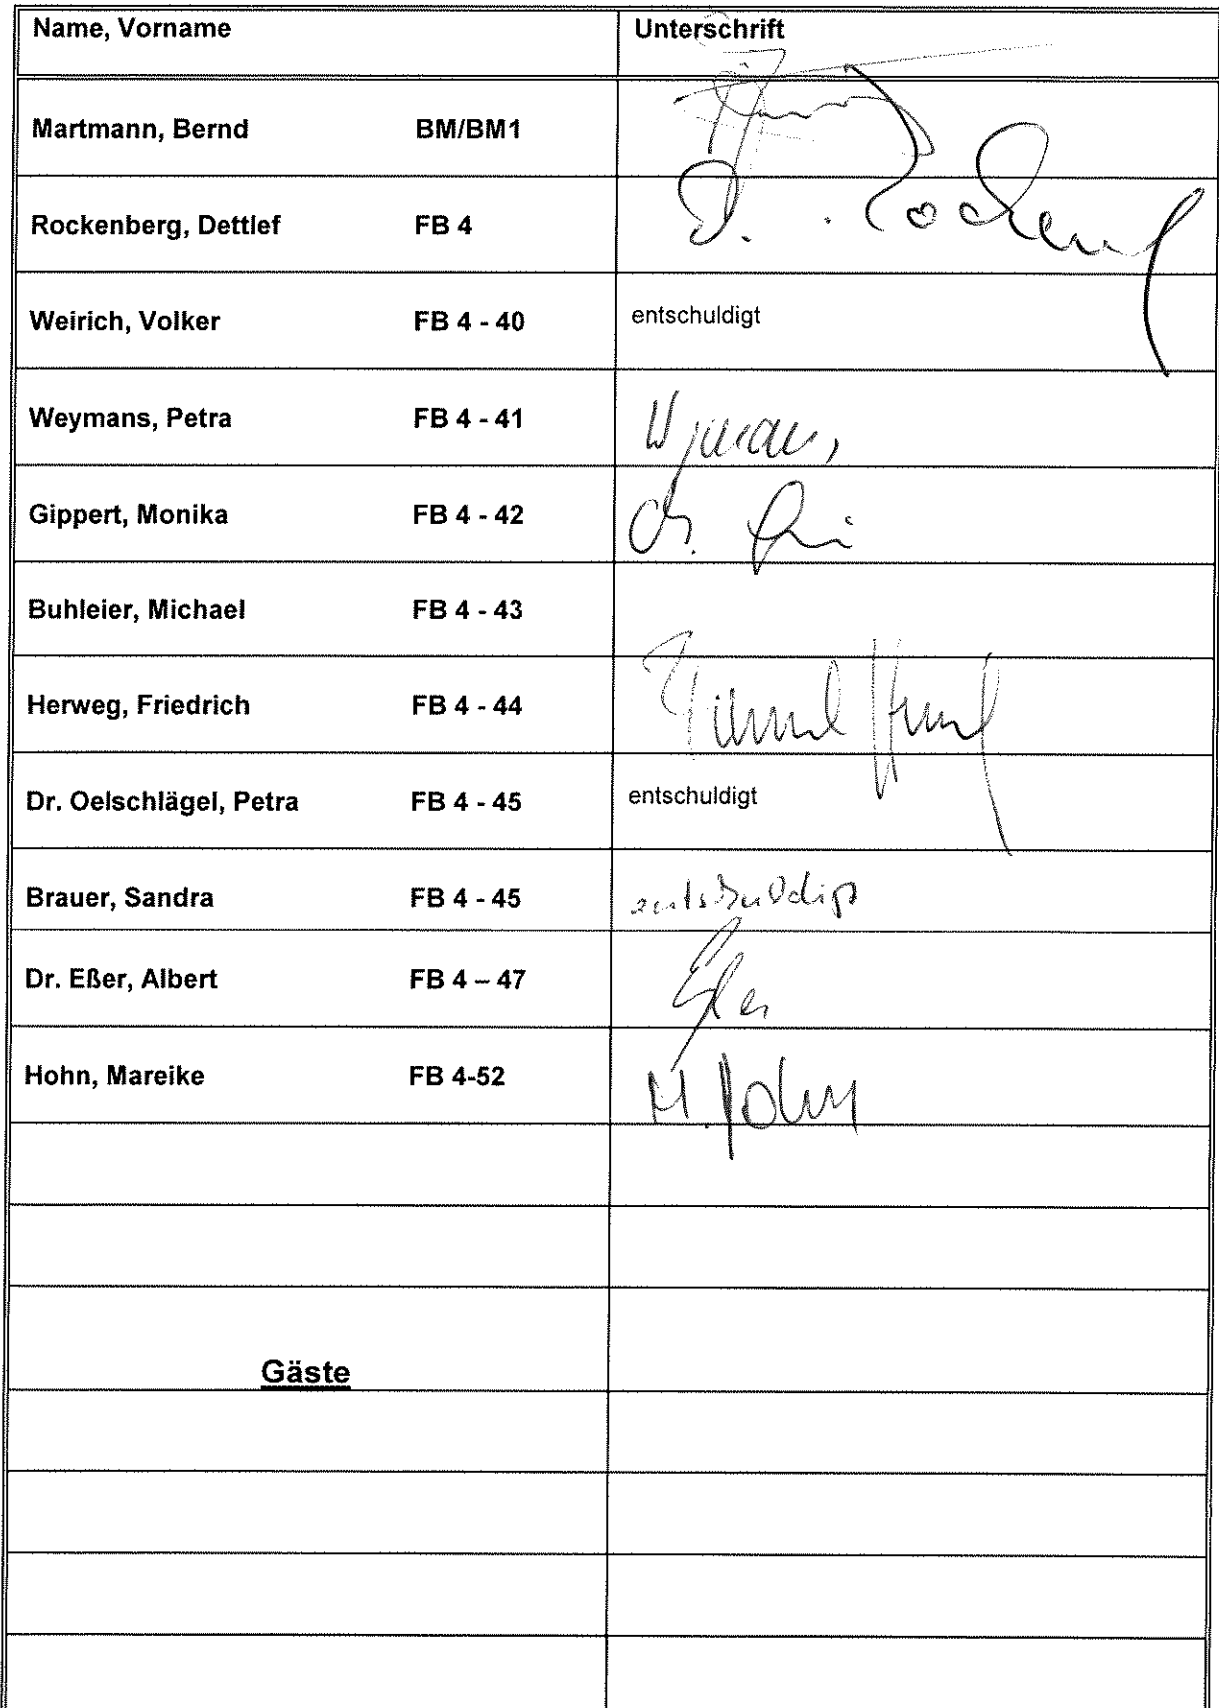 Name, Vorname Unterschrift
Martmann, Bernd BM/BM1
Rockenberg, Dettlef FB 4 D. Rockenberg
Weirich, Volker FB 4 - 40 entschuldigt
Weymans, Petra FB 4 - 41 Weymans
Gippert, Monika FB 4 - 42
Buhleier, Michael FB 4 - 43
Herweg, Friedrich FB 4 - 44
Dr. Oelschlägel, Petra FB 4 - 45 entschuldigt
Brauer, Sandra FB 4 - 45 entschuldigt
Dr. Eßer, Albert FB 4 – 47 Eßer
Hohn, Mareike FB 4-52 M. Hohn
Gäste